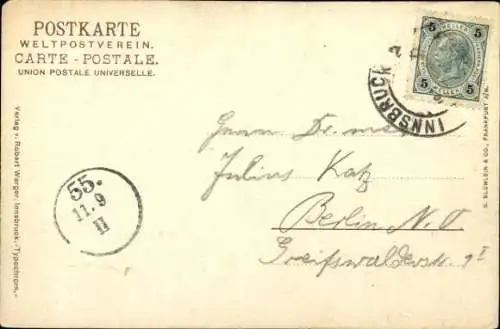 POSTKARTE
WELTPOSTVEREIN.
CARTE - POSTALE.
UNION POSTALE UNIVERSELLE.
5 HELLER 5
5 HELLER 5
INNSBRUCK
2
Verlag v. Robert Warger, Innsbruck.-Typochrom.-
G. BLÜMLEIN & CO., FRANKFURT A/M.
55.
11.9
II
Herrn Dr. med
Julius Katz
Berlin N.O
Greifswalderstr. 9 I